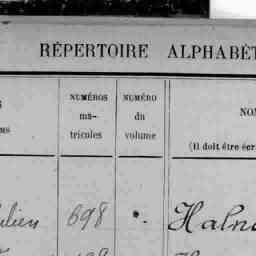 RÉPERTOIRE ALPHABÉT
NUMÉROS
ma-
tricules
NUMÉRO
du
volume
NO
MS
(Il doit être écr
ulien 698 Haln